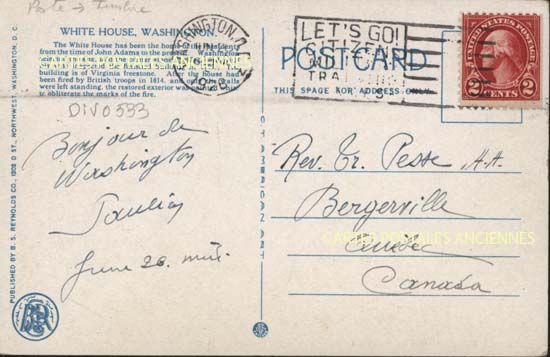 Poste → timbre
WHITE HOUSE, WASHINGTON, D. C.
The White House has been the home of the Presidents
from the time of John Adams to the present. Washington
CARTES POSTALES ANCIENNES
building is of Virginia freestone. After the house had
been fired by British troops in 1814, and only the walls
were left standing, the restored exterior was painted white
to obliterate the marks of the fire.
DIV0533
Bonjour de
Washington
June 26.
PUBLISHED BY B. S. REYNOLDS CO., D ST., NORTHWEST, WASHINGTON, D. C.
WASHINGTON, D.C.
LET'S GO!
CITIZENS
TRAINING
POST CARD
THIS SPACE FOR ADDRESS ONLY
UNITED STATES POSTAGE
2 CENTS 2
Rev. Tr. Pesse A.A.
Bergerville
Québec
CARTES POSTALES ANCIENNES
Canada